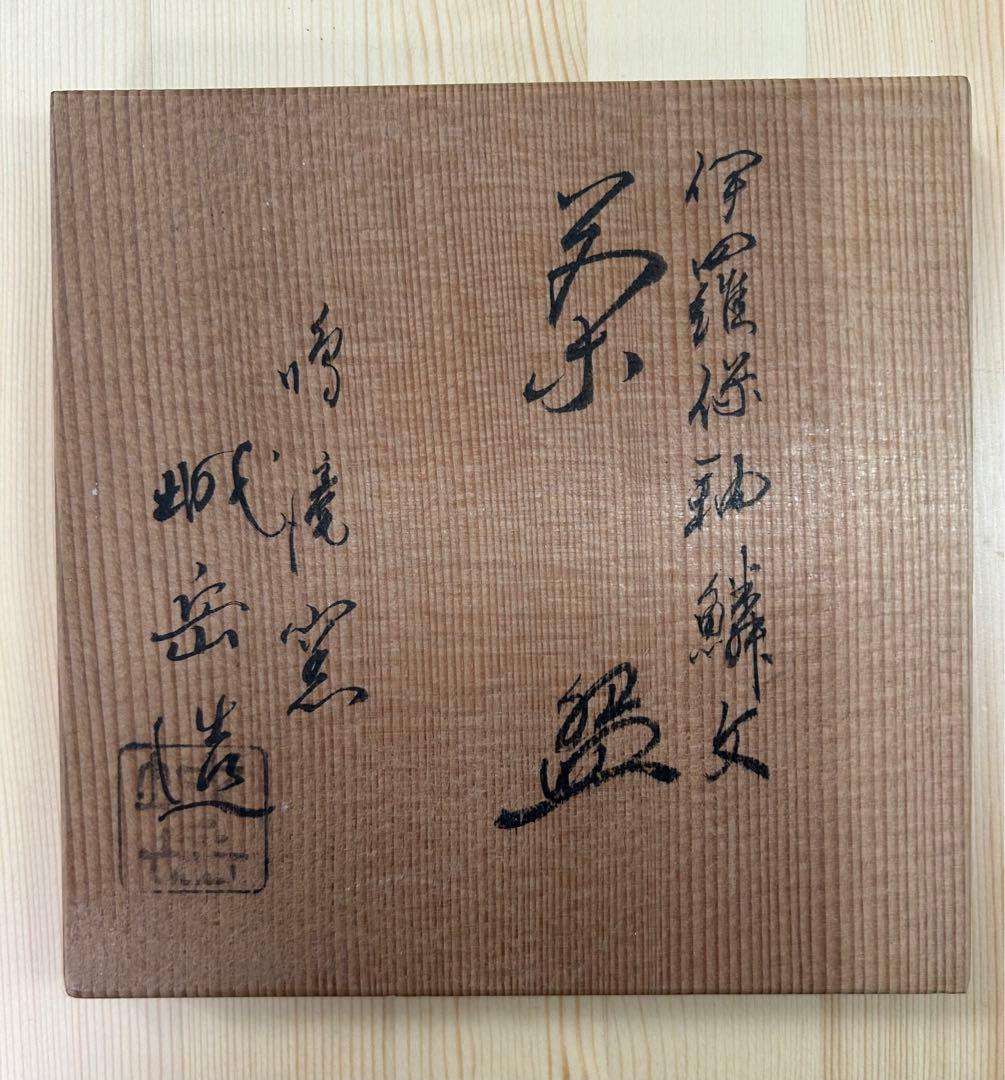 伊羅保釉鱗文
菓盤
鳴滝窯
城岳造